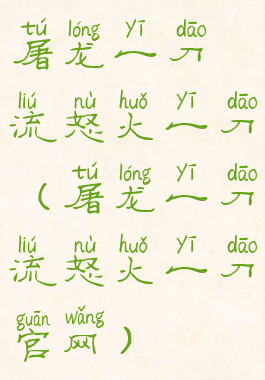 tú lóng yī dāo
屠龙一刀
liú nù huǒ yī dāo
流怒火一刀
tú lóng yī dāo
(屠龙一刀
liú nù huǒ yī dāo
流怒火一刀
guān wǎng
官网)